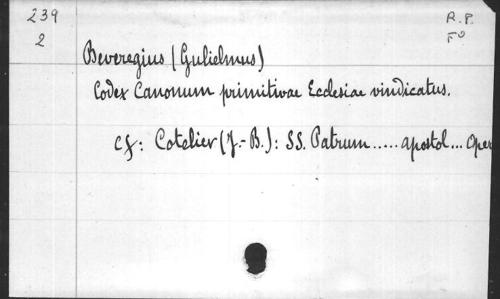 239 R.P.
2 Fo
Beveregius (Gulielmus)
Codex Canonum primitivae Ecclesiae vindicatus.
cf: Cotelier (J.-B.): SS. Patrum ..... apostol ... Oper